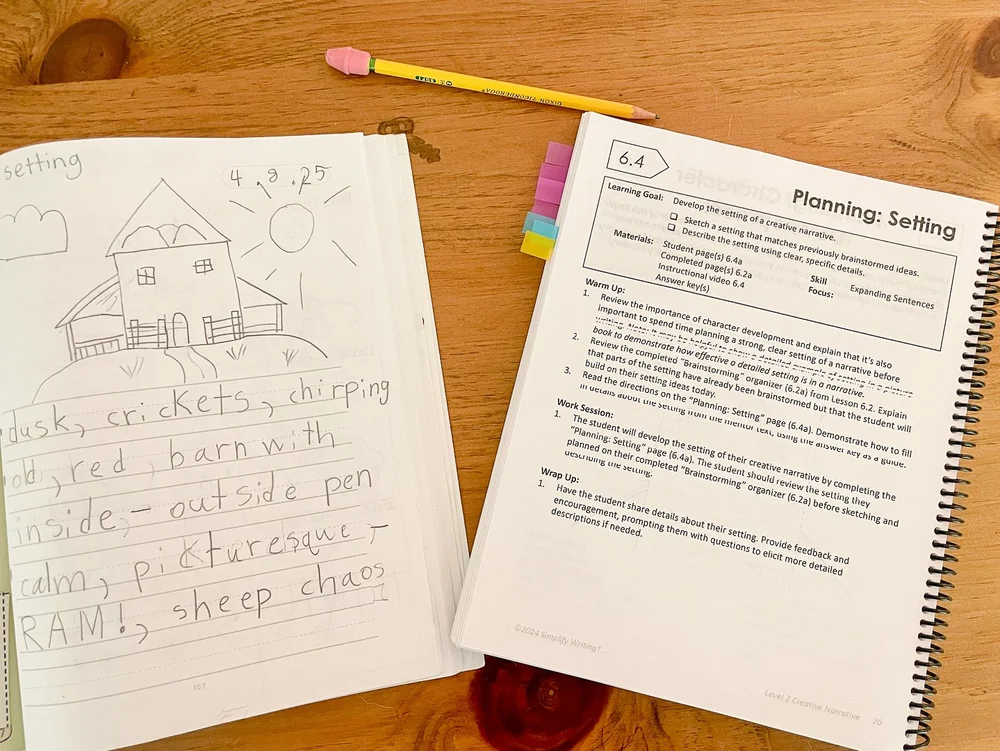 setting
4.9.25
dusk, crickets, chirping
old, red, barn with
inside,- outside pen
calm, pickturesque,-
RAM!, sheep chaos
157
DIXON TICONDEROGA
6.4
Planning: Setting
Learning Goal: Develop the setting of a creative narrative.
❑ Sketch a setting that matches previously brainstormed ideas.
❑ Describe the setting using clear, specific details.
Materials: Student page(s) 6.4a
Completed page(s) 6.2a
Instructional video 6.4
Answer key(s)
Skill Focus: Expanding Sentences
Warm Up:
1. Review the importance of character development and explain that it's also
important to spend time planning a strong, clear setting of a narrative before
writing. Note: It may be helpful to show a detailed example of setting in a picture
book to demonstrate how effective a detailed setting is in a narrative.
2. Review the completed "Brainstorming" organizer (6.2a) from Lesson 6.2. Explain
that parts of the setting have already been brainstormed but that the student will
build on their setting ideas today.
3. Read the directions on the "Planning: Setting" page (6.4a). Demonstrate how to fill
in details about the setting from the mentor text, using the answer key as a guide.
Work Session:
1. The student will develop the setting of their creative narrative by completing the
"Planning: Setting" page (6.4a). The student should review the setting they
planned on their completed "Brainstorming" organizer (6.2a) before sketching and
describing the setting.
Wrap Up:
1. Have the student share details about their setting. Provide feedback and
encouragement, prompting them with questions to elicit more detailed
descriptions if needed.
©2024 Simplify Writing®
Level 2 Creative Narrative 20